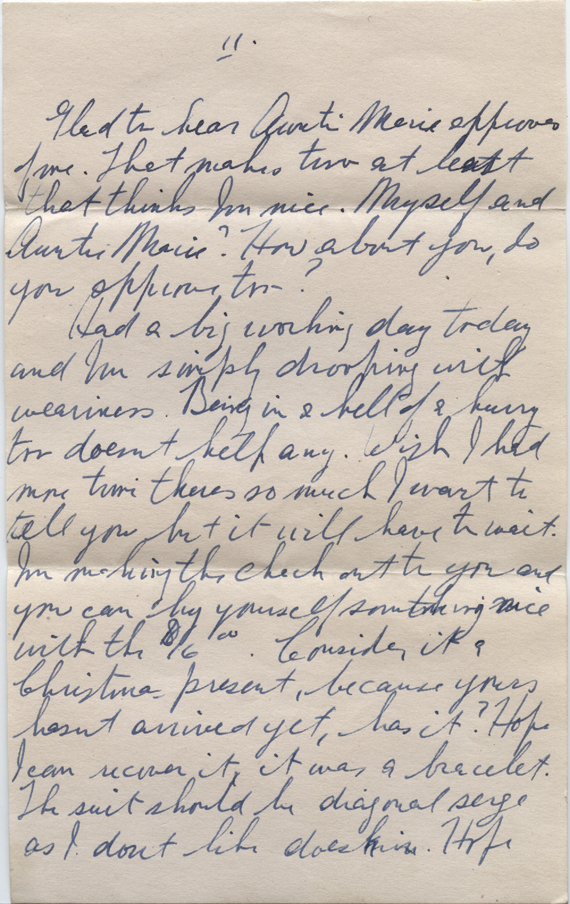 11.
Glad to hear Auntie Marie approves
of me. That makes two at least
that thinks Im nice. Myself and
Auntie Marie? How about you, do
you approve too?
Had a big working day today
and Im simply drooping with
weariness. Being in a hell of a hurry
too doesnt help any. Wish I had
more time theres so much I want to
tell you but it will have to wait.
Im making the check out to you and
you can buy yourself something nice
with the $6 00. Consider it a
Christmas present, because yours
hasnt arrived yet, has it? Hope
I can recover it, it was a bracelet.
The suit should be diagonal serge
as I dont like doeskin. Hope